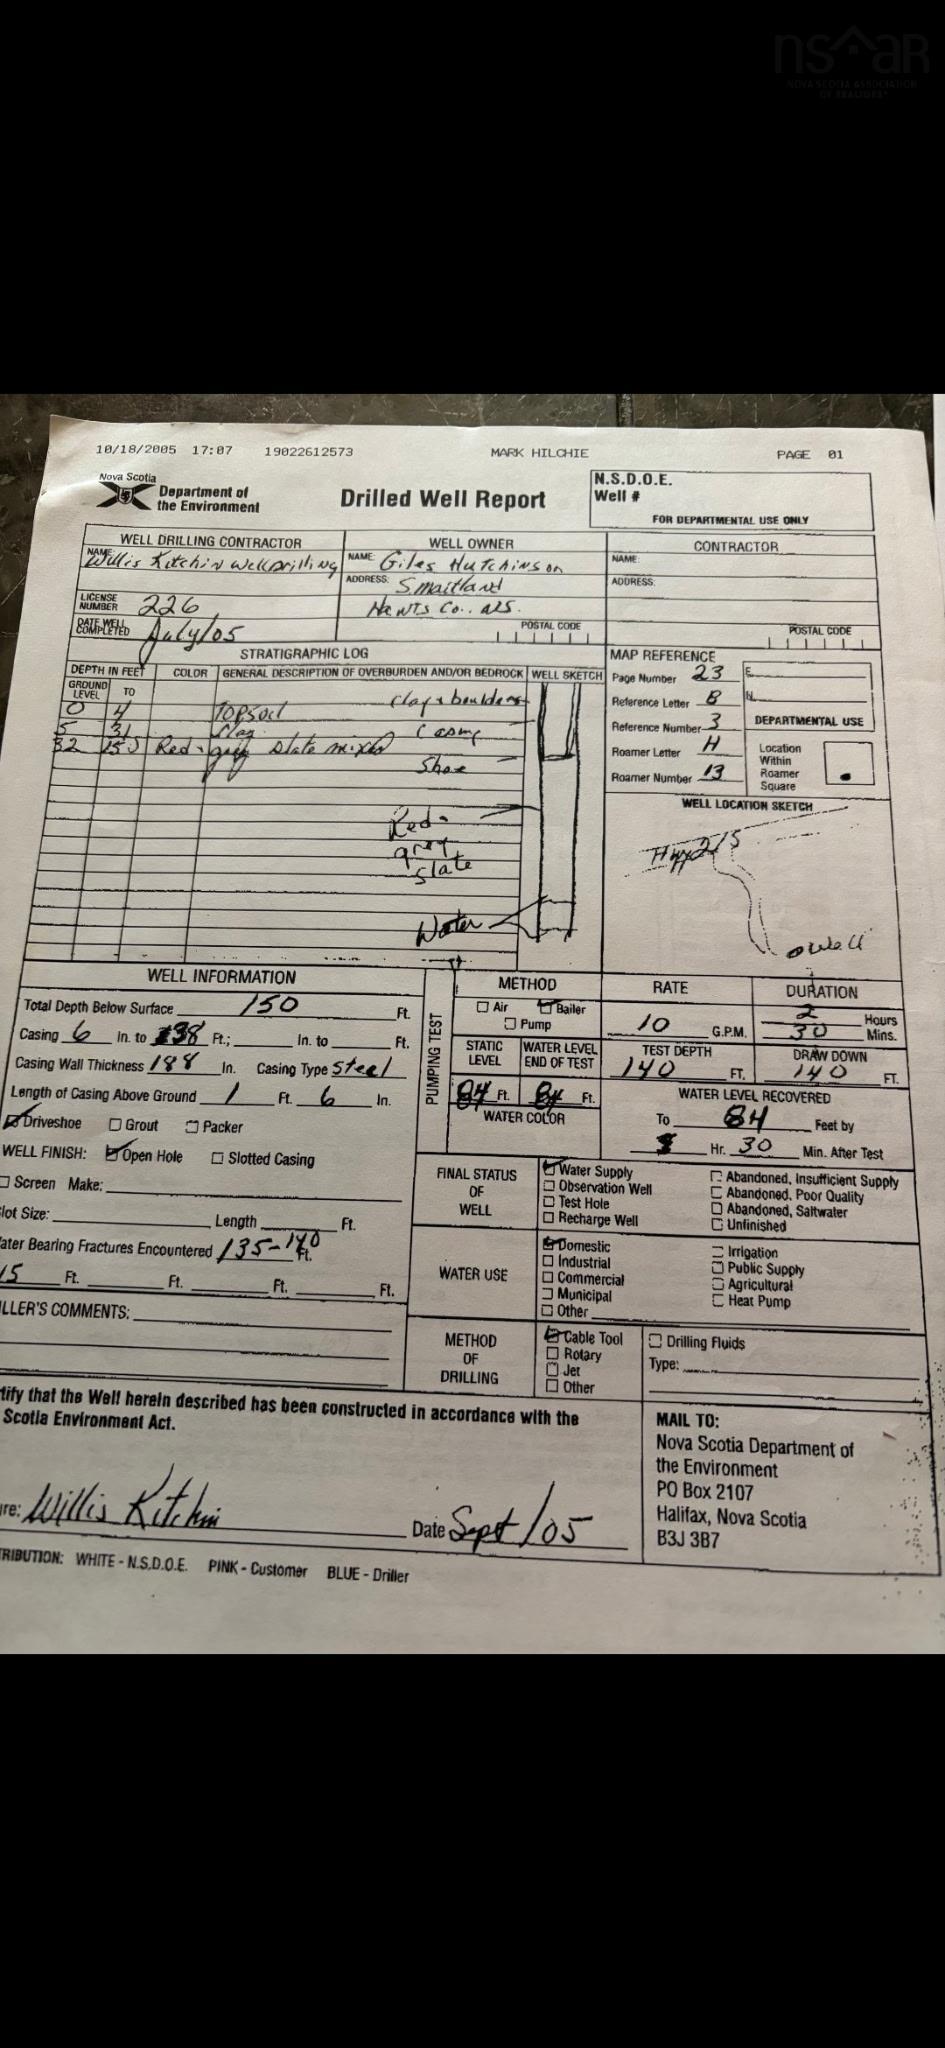 nsar
NOVA SCOTIA ASSOCIATION
OF REALTORS®
10/18/2005 17:07 19022612573 MARK HILCHIE PAGE 01
Nova Scotia
Department of
the Environment
Drilled Well Report
N.S.D.O.E.
Well #
FOR DEPARTMENTAL USE ONLY
WELL DRILLING CONTRACTOR
NAME: Willis Kitchin Well Drilling
LICENSE NUMBER 226
DATE WELL COMPLETED July/05
WELL OWNER
NAME: Giles Hutchinson
ADDRESS: S maitland
Hants Co., NS.
POSTAL CODE
CONTRACTOR
NAME:
ADDRESS:
POSTAL CODE
STRATIGRAPHIC LOG
DEPTH IN FEET COLOR GENERAL DESCRIPTION OF OVERBURDEN AND/OR BEDROCK WELL SKETCH
GROUND LEVEL TO
clay & boulders
0 4 TOPSOIL
5 31 Clay Casing
32 150 Red & grey slate mixed
Shoe
Red &
grey
slate
Water
MAP REFERENCE
Page Number 23
Reference Letter B
Reference Number 3
Roamer Letter H
Roamer Number 13
E
N
DEPARTMENTAL USE
Location
Within
Roamer
Square
WELL LOCATION SKETCH
Hwy 215
o well
WELL INFORMATION
Total Depth Below Surface 150 Ft.
Casing 6 In. to 38 Ft.; In. to Ft.
Casing Wall Thickness 188 In. Casing Type Steel
Length of Casing Above Ground 1 Ft. 6 In.
Driveshoe Grout Packer
WELL FINISH: Open Hole Slotted Casing
Screen Make:
lot Size: Length Ft.
ater Bearing Fractures Encountered 135-140 Ft.
15 Ft. Ft. Ft. Ft.
LLER'S COMMENTS:
PUMPING TEST
METHOD
Air Bailer
Pump
RATE
10 G.P.M.
DURATION
2 Hours
30 Mins.
STATIC LEVEL
84 Ft.
WATER LEVEL END OF TEST
84 Ft.
TEST DEPTH
140 FT.
DRAW DOWN
140 FT.
WATER COLOR
WATER LEVEL RECOVERED
To 84 Feet by
Hr. 30 Min. After Test
FINAL STATUS
OF
WELL
Water Supply
Observation Well
Test Hole
Recharge Well
Abandoned, Insufficient Supply
Abandoned, Poor Quality
Abandoned, Saltwater
Unfinished
WATER USE
Domestic
Industrial
Commercial
Municipal
Other
Irrigation
Public Supply
Agricultural
Heat Pump
METHOD
OF
DRILLING
Cable Tool
Rotary
Jet
Other
Drilling Fluids
Type:
tify that the Well herein described has been constructed in accordance with the
Scotia Environment Act.
ure: Willis Kitchin Date Sept/05
MAIL TO:
Nova Scotia Department of
the Environment
PO Box 2107
Halifax, Nova Scotia
B3J 3B7
TRIBUTION: WHITE - N.S.D.O.E. PINK - Customer BLUE - Driller